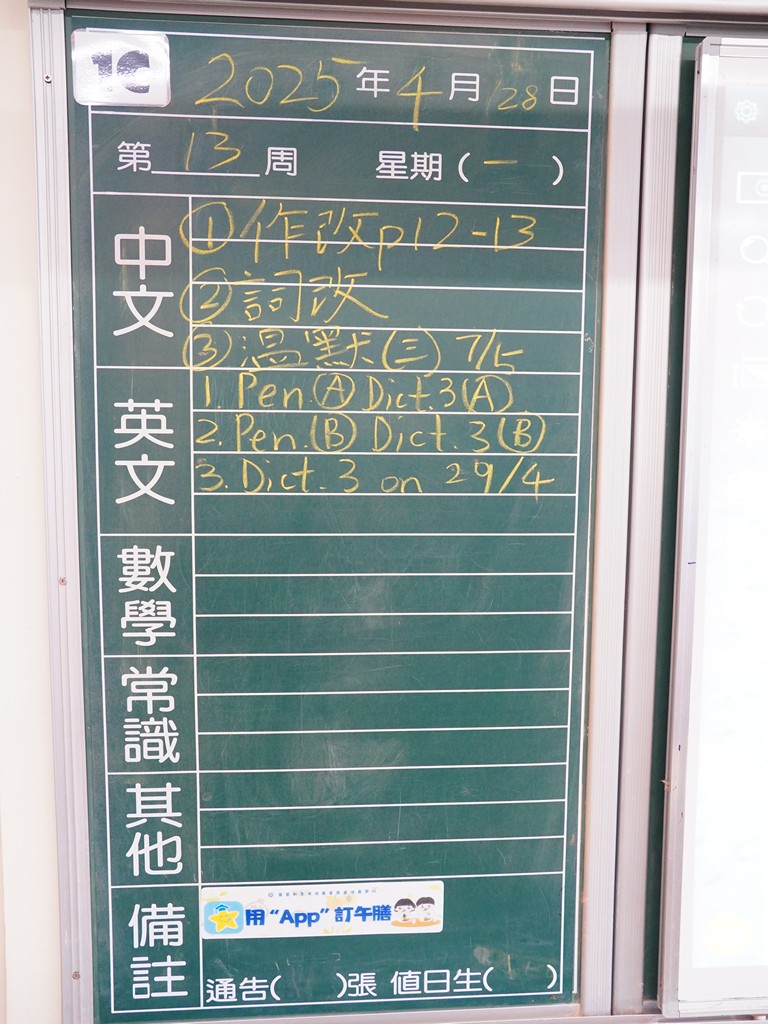 1C
2025年4月28日
第13周 星期(一)
中文
①作改p12-13
②詞改
③溫默(三) 7/5
英文
1. Pen.Ⓐ Dict.3Ⓐ
2. Pen.Ⓑ Dict.3Ⓑ
3. Dict.3 on 29/4
數學
常識
其他
備註
用“App”訂午膳
通告( )張 值日生( )